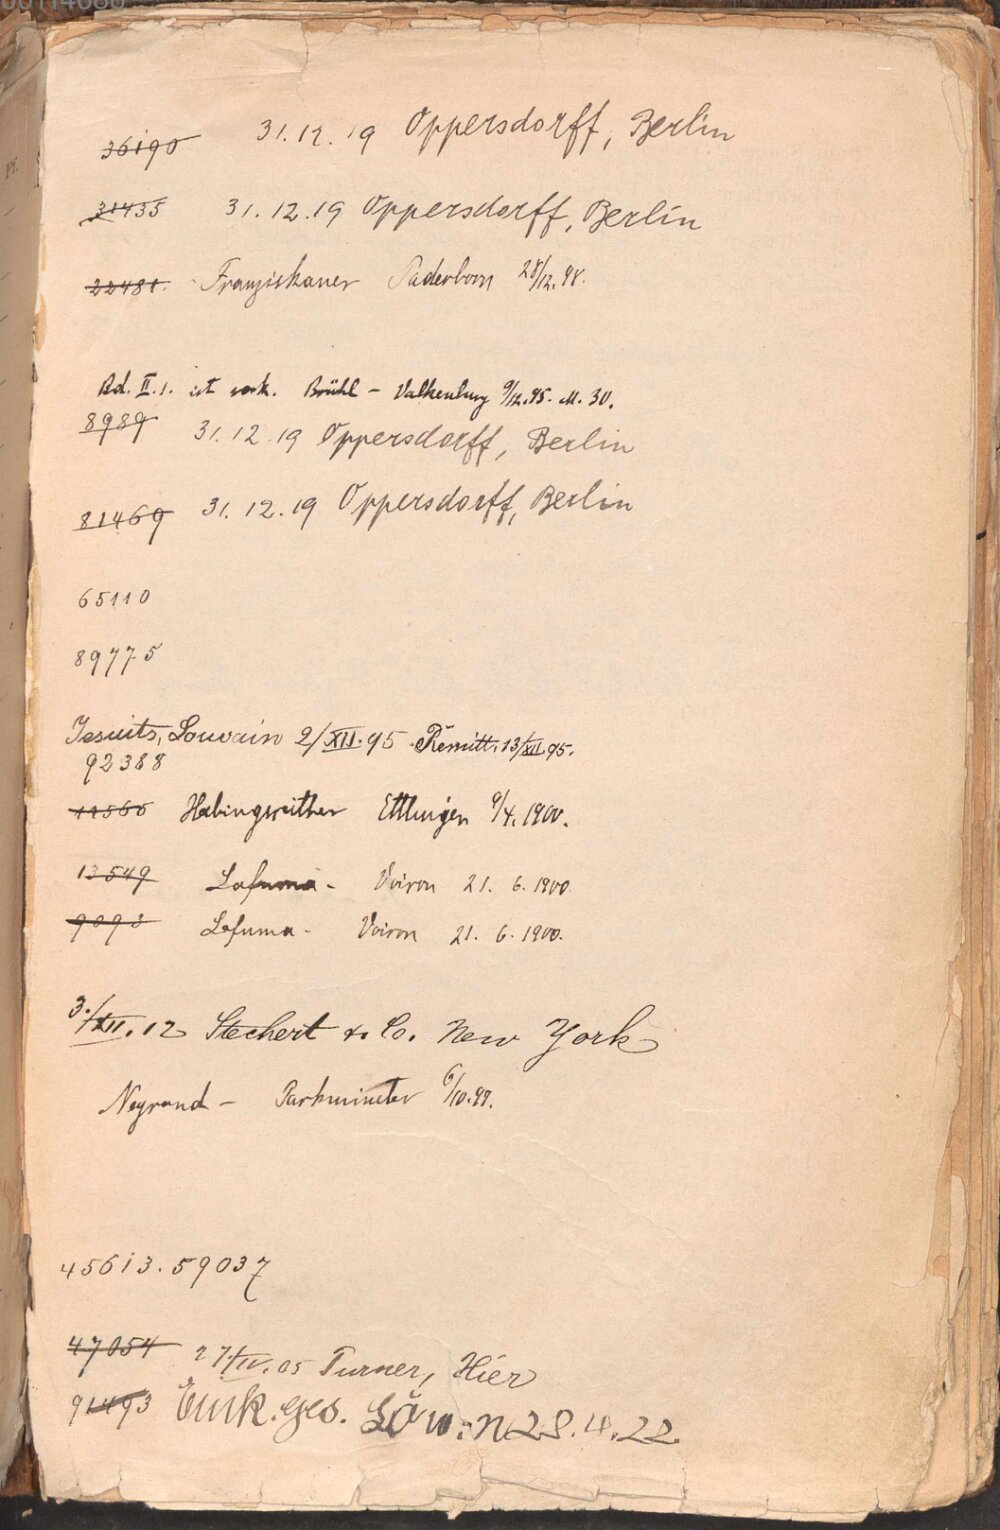 36190 31.12.19 Oppersdorff, Berlin
31435 31.12.19 Oppersdorff, Berlin
22481. Franziskaner Paderborn 28/12.98.
Bd. II.1. ist vork. Brühl - Valkenburg 9/12.95. M. 30.
8989 31.12.19 Oppersdorff, Berlin
81469 31.12.19 Oppersdorff, Berlin
65110
89775
Jesuits, Louvain 2/XII.95 Remitt. 13/XII.95.
92388
Ettlingen 9/4.1900.
13549 Lafuma - Voiron 21. 6. 1900.
9093 Lafuma - Voiron 21. 6. 1900.
3./XII.12 Stechert & Co. New York
Neyrand - Parkminster 6/10.99.
45613. 59037
47054 27/IV.05 Turner, Hier
91493 28.4.22